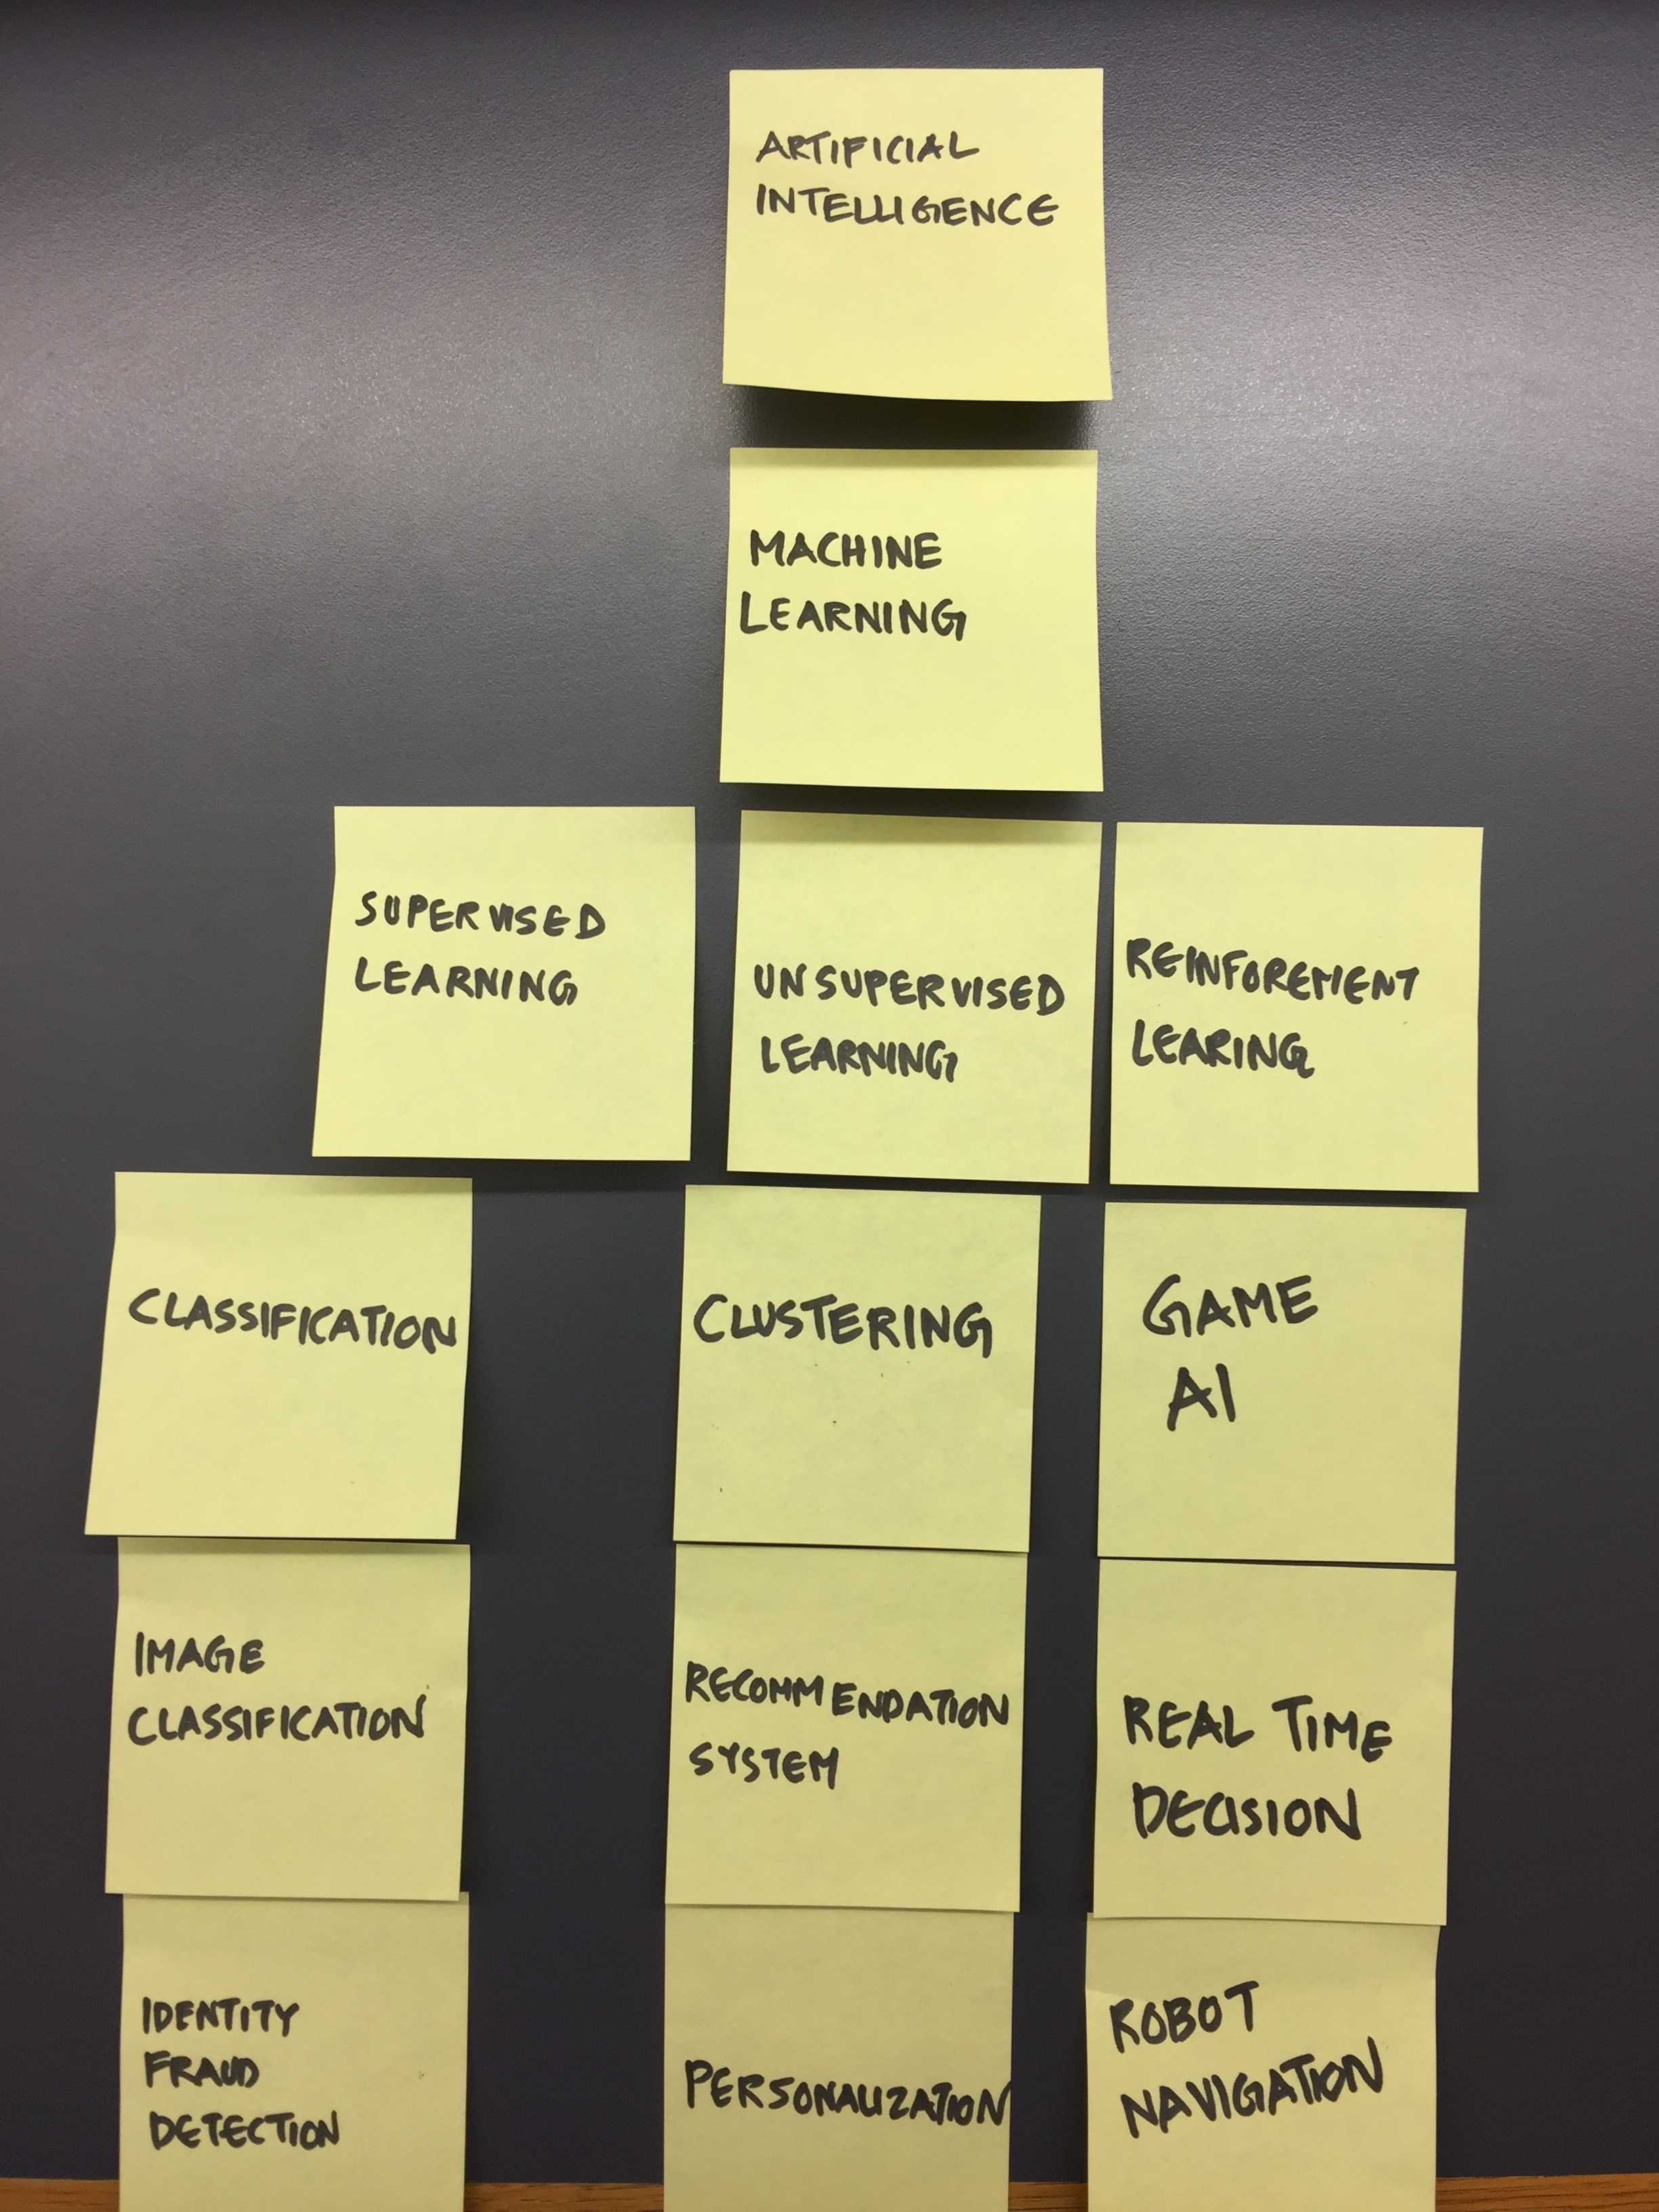 ARTIFICIAL
INTELLIGENCE
MACHINE
LEARNING
SUPERVISED
LEARNING
UNSUPERVISED
LEARNING
REINFOREMENT
LEARING
CLASSIFICATION
CLUSTERING
GAME
AI
IMAGE
CLASSIFICATION
RECOMMENDATION
SYSTEM
REAL TIME
DECISION
IDENTITY
FRAUD
DETECTION
PERSONALIZATION
ROBOT
NAVIGATION